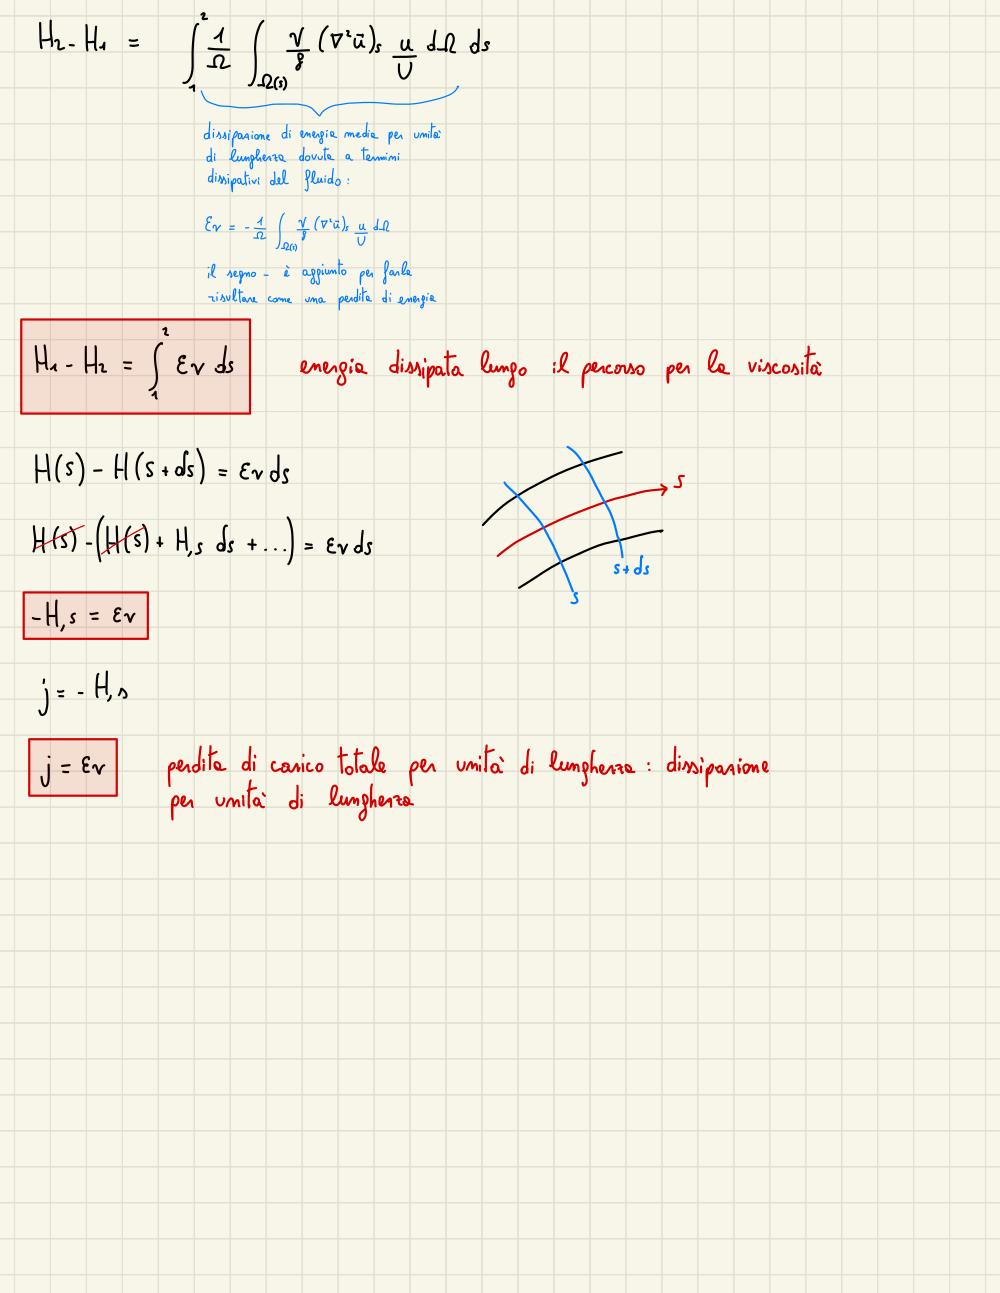 H₂ - H₁ = ∫₁² 1/Ω ∫_Ω(s) ν/g (∇²ū)ₛ u/U dΩ ds
dissipazione di energia media per unità
di lunghezza dovuta a termini
dissipativi del fluido :
εν = - 1/Ω ∫_Ω(s) ν/g (∇²ū)ₛ u/U dΩ
il segno - è aggiunto per farla
risultare come una perdita di energia
H₁ - H₂ = ∫₁² εν ds energia dissipata lungo il percorso per la viscosità
H(s) - H(s+ds) = εν ds
s
H(s) - (H(s) + H,s ds + ...) = εν ds
s+ds
s
-H,s = εν
j = - H,s
j = εν perdita di carico totale per unità di lunghezza : dissipazione
per unità di lunghezza